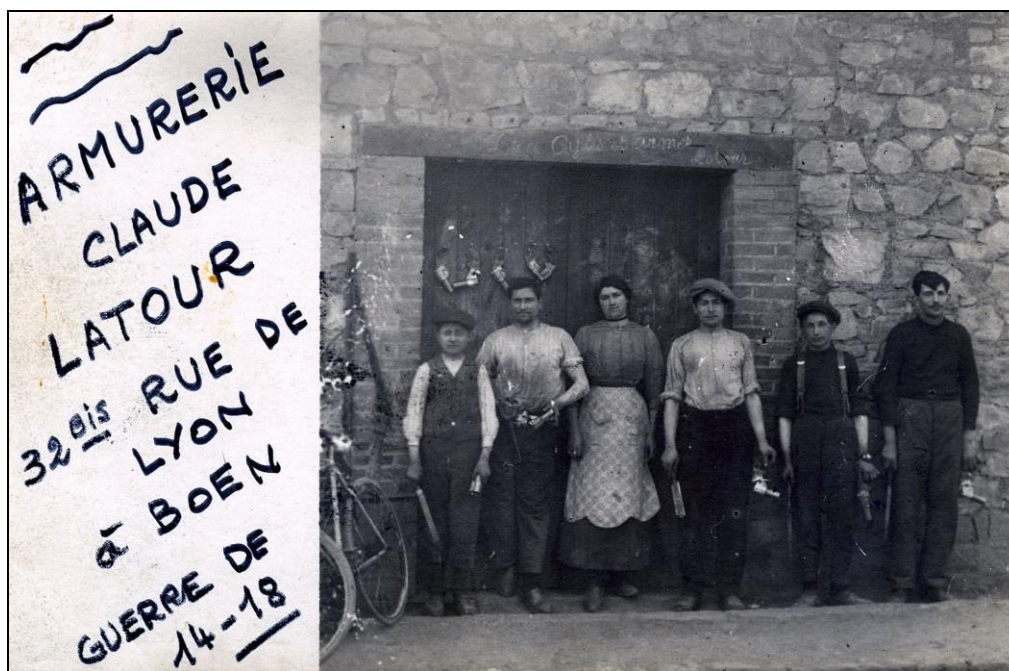 ARMURERIE
CLAUDE
LATOUR
32 Bis RUE DE
LYON
à BOEN
GUERRE DE
14-18
Cycles et armes
Latour